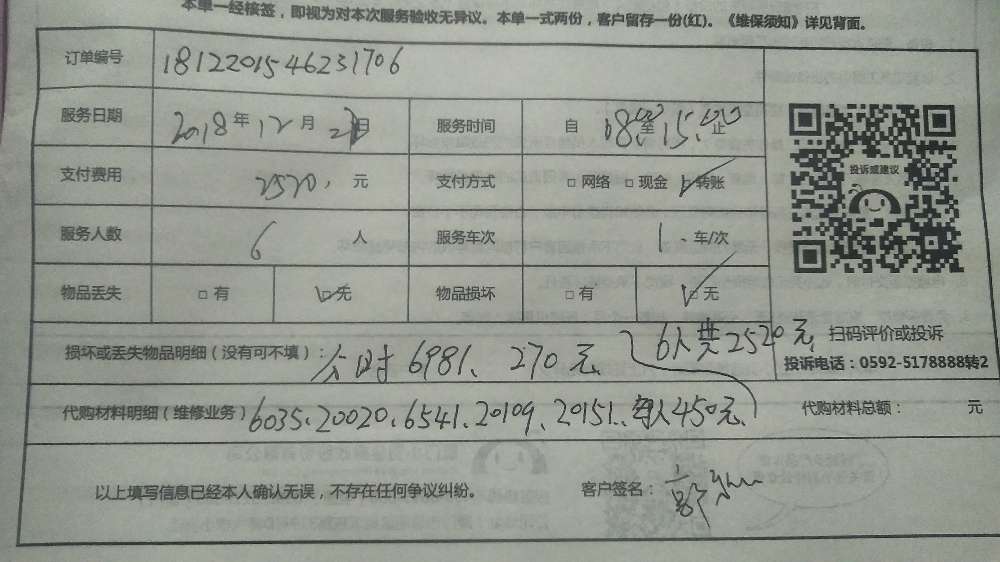 本单一经核签，即视为对本次服务验收无异议。本单一式两份，客户留存一份(红)。《维保须知》详见背面。
订单编号 1812201546231706
服务日期 2018年12月23日 服务时间 自 08:00至15:00止
支付费用 2520，元 支付方式 □网络 □现金 ☑转账
服务人数 6 人 服务车次 1 车/次
投诉或建议
物品丢失 □有 ☑无 物品损坏 □有 ☑无
损坏或丢失物品明细（没有可不填）：公时 6981、270元 6人共2520元
扫码评价或投诉
投诉电话：0592-5178888转2
代购材料明细（维修业务）6035、20020、6541、20109、20151、每人450元 代购材料总额： 元
以上填写信息已经本人确认无误，不存在任何争议纠纷。 客户签名：